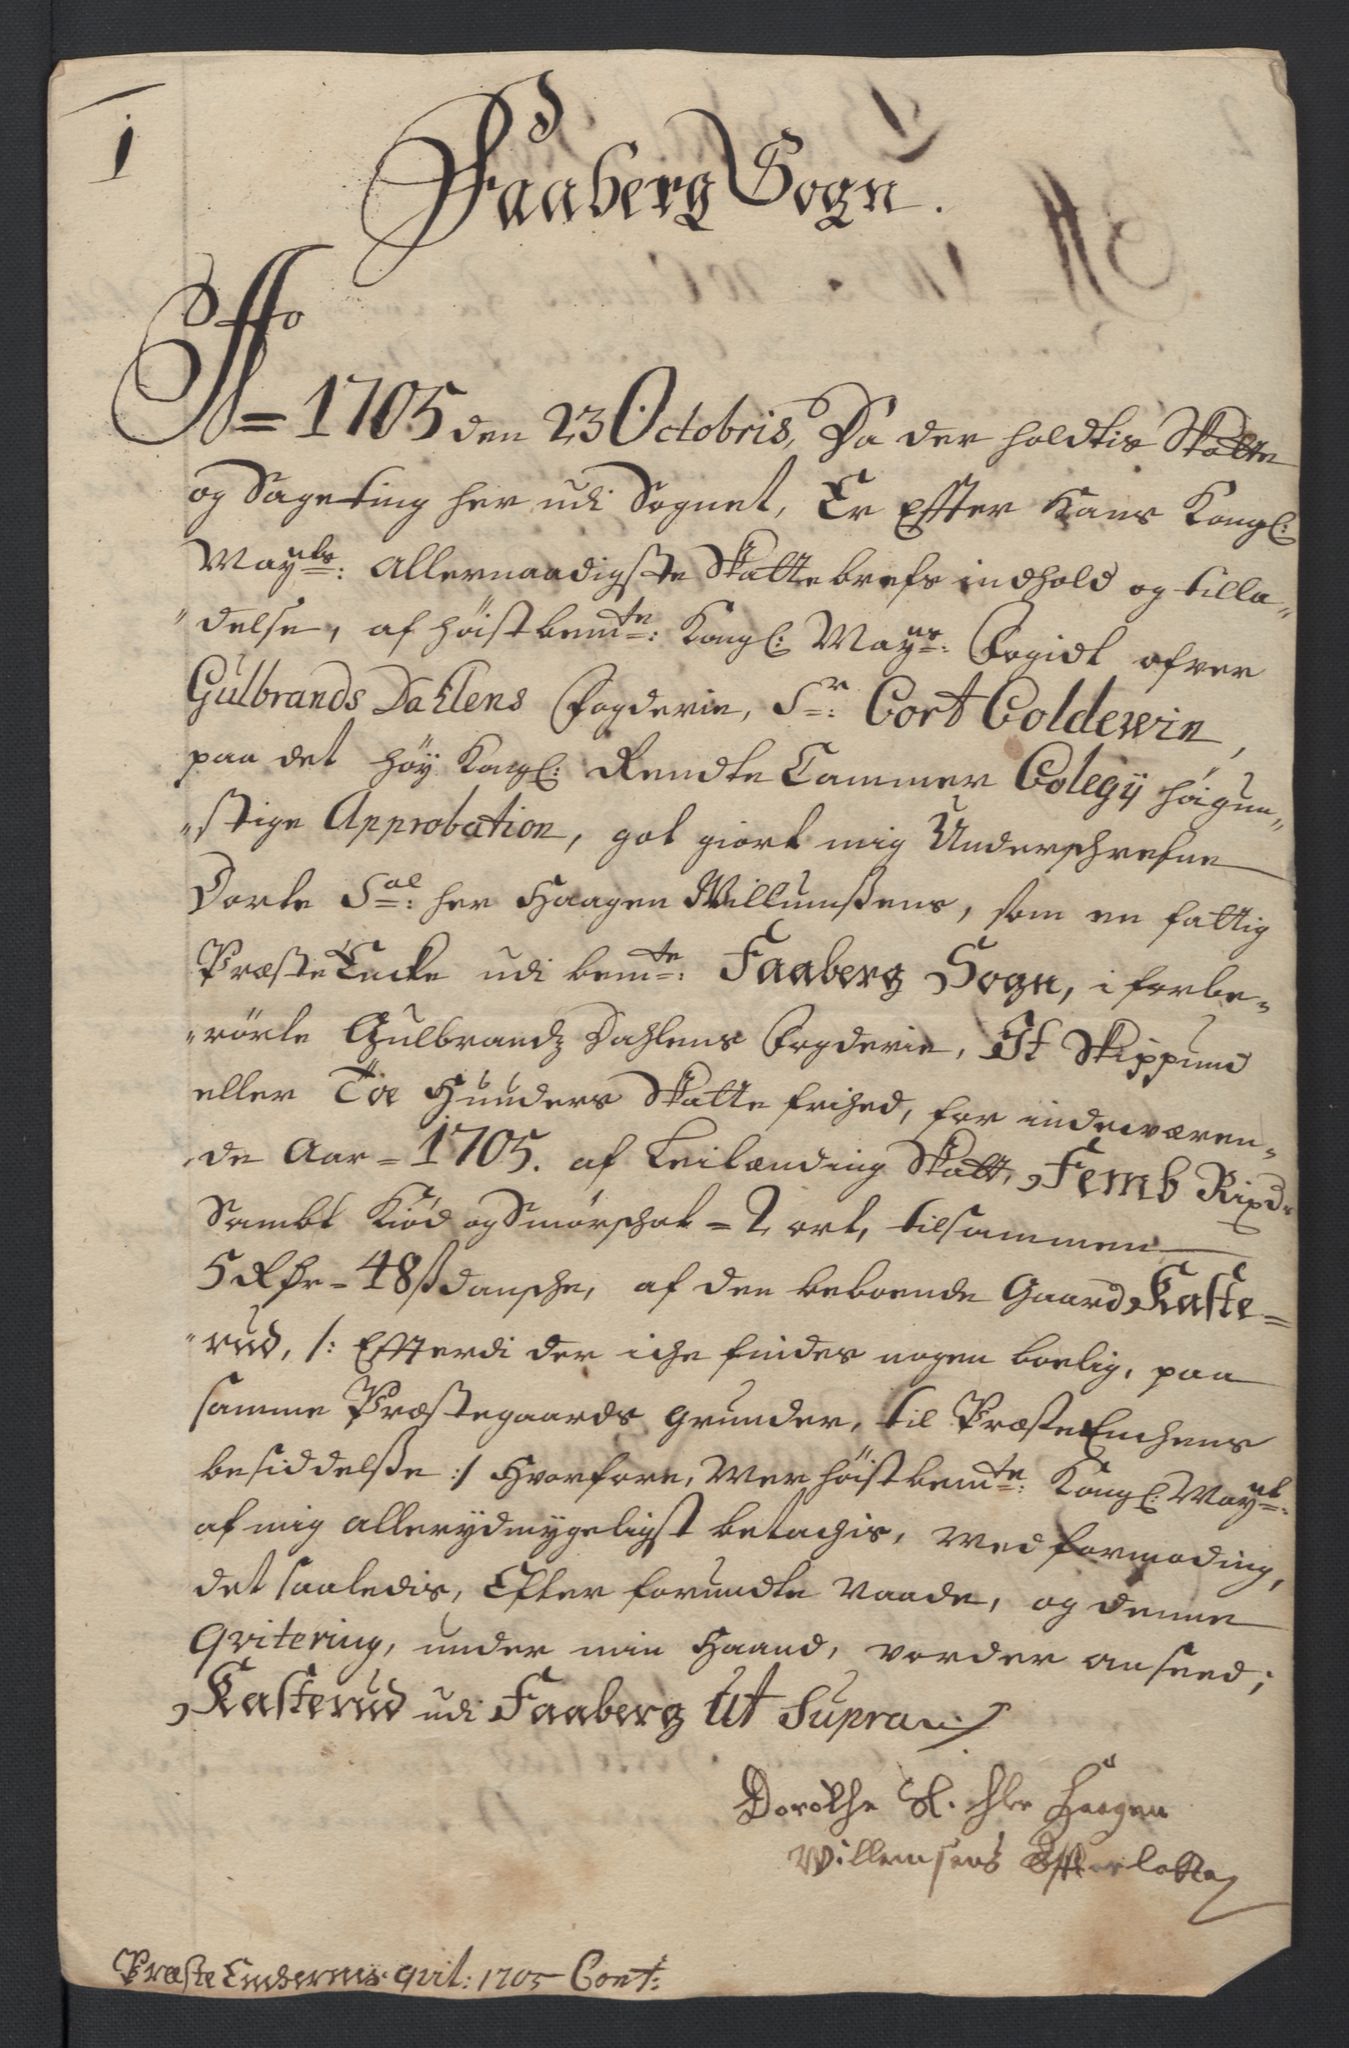 1
Faaberg Sogn.
Ao
= 1705 den 23 Octobris, Da der holdtis Skatte
og Sageting her udi Sognet, Er Effter Hans Kongl:
Mayts: Allernaadigste Skattebrefs indhold og tilla„
„delse, af höistbemte: Kongl: Mayts: Fogidt ofver
Gulbrands Dahlens Fogderie, Sr: Cort Coldewin,
paa det höy Kongl: Rendte Cammer Colegij höigun„
„stige Approbation, got giort mig Underschrefne
Dorte Sal: her Haagen Willumßens, som en fattig
Præste Encke udi bemte: Faaberg Sogn, i forbe„
„rörte Gulbrandz Dahlens Fogderie, It Skippund
eller Toe Hunders Skatte frihed, for indeværen„
„de Aar = 1705. af Leilænding Skatt, Femb Rixd„
Sambt Kiöd og Smörschat = 2 ort, tilsammen
5 Rdr = 48 ß dansche, af den beboende Gaard Kaste=
„rud, /: Efftterdi der iche findes nogen boelig, paa
samme Præstegaards grunder, til PræsteEnchens
besiddelße :/ Hvorfore, Wer höistbemte: Kongl: Mayt:
af mig allerydmygeligst betachis, Med formoding,
det saaledis, Efter forundte Naade, og denne
Qvitering, under min Haand, vorder anseed;
Kasterud udi Faaberg Ut Supra
Dorothe Sl. Her Haagen
Willemsens Effterlatte
Præste Enchernis qvit: 1705 Cont: